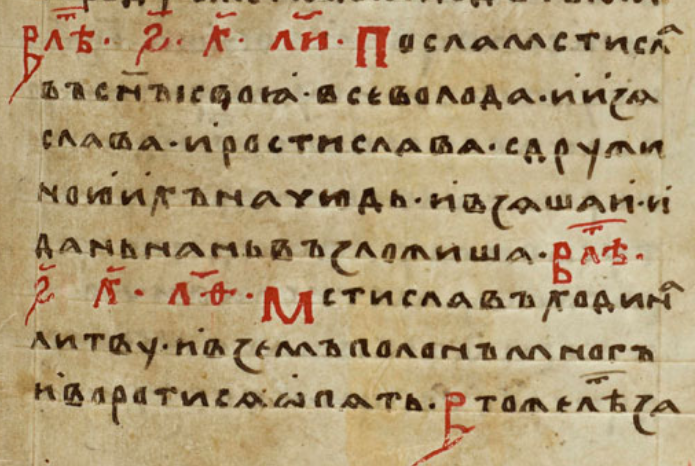 В лѣ҃т · ѕ҃ · х҃ · л҃и · Посла мстисла
въ сн҃ъı своꙗ · всеволода · и изѧ
слава · и ростислава · с дружи
ною ихъ на чюдь · и взѧша и · и
дань на нь възложиша · В лѣ҃т ·
ѕ҃ · х҃ · л҃ѳ · Мстиславъ ходи на
литву · и вземъ полонъ многъ
и воротисѧ ѡпѧть · В то же лѣ҃т за